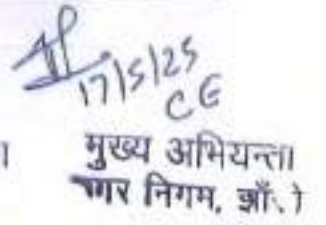 17/5/25
CE
। मुख्य अभियन्ता
नगर निगम, झाँ